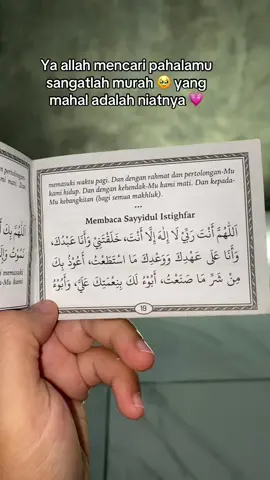 Ya allah mencari pahalamu
sangatlah murah 🥺 yang
mahal adalah niatnya 💗
memasuki waktu pagi. Dan dengan rahmat dan pertolongan-Mu
kami hidup. Dan dengan kehendak-Mu kami mati. Dan kepada-
Mu kebangkitan (bagi semua makhluk).
•••
Membaca Sayyidul Istighfar
اَللّٰهُمَّ أَنْتَ رَبِّيْ لَا إِلٰهَ إِلَّا أَنْتَ، خَلَقْتَنِيْ وَأَنَا عَبْدُكَ،
وَأَنَا عَلَى عَهْدِكَ وَوَعْدِكَ مَا اسْتَطَعْتُ، أَعُوْذُ بِكَ
مِنْ شَرِّ مَا صَنَعْتُ، أَبُوْءُ لَكَ بِنِعْمَتِكَ عَلَيَّ، وَأَبُوْءُ
19